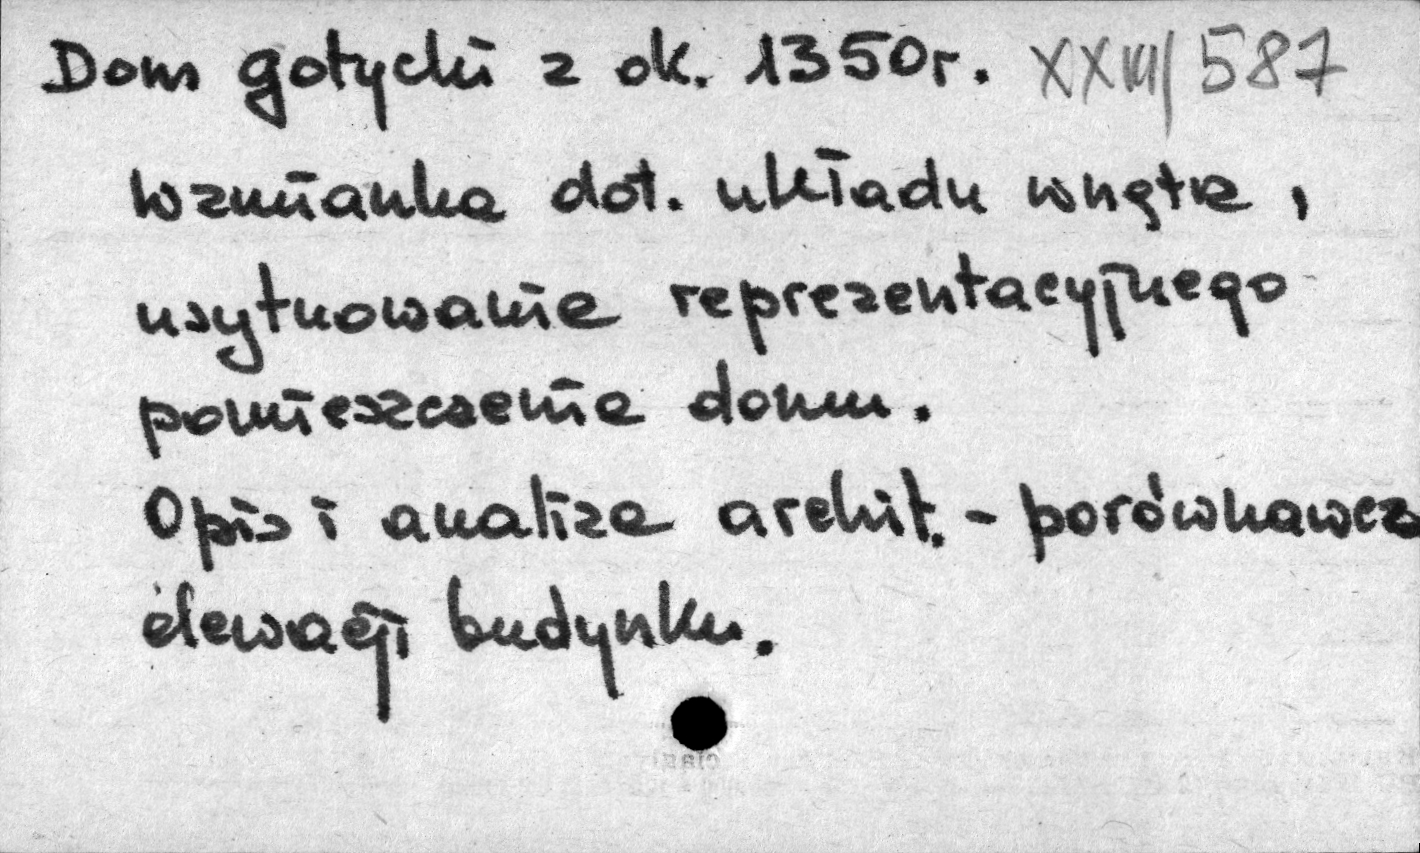 Dom gotycki z ok. 1350r. XXIII/587
Wzmianka dot. układu wnętrz,
usytuowanie reprezentacyjnego
pomieszczenia domu.
Opis i analiza archit. - porównawcz
elewacji budynku.